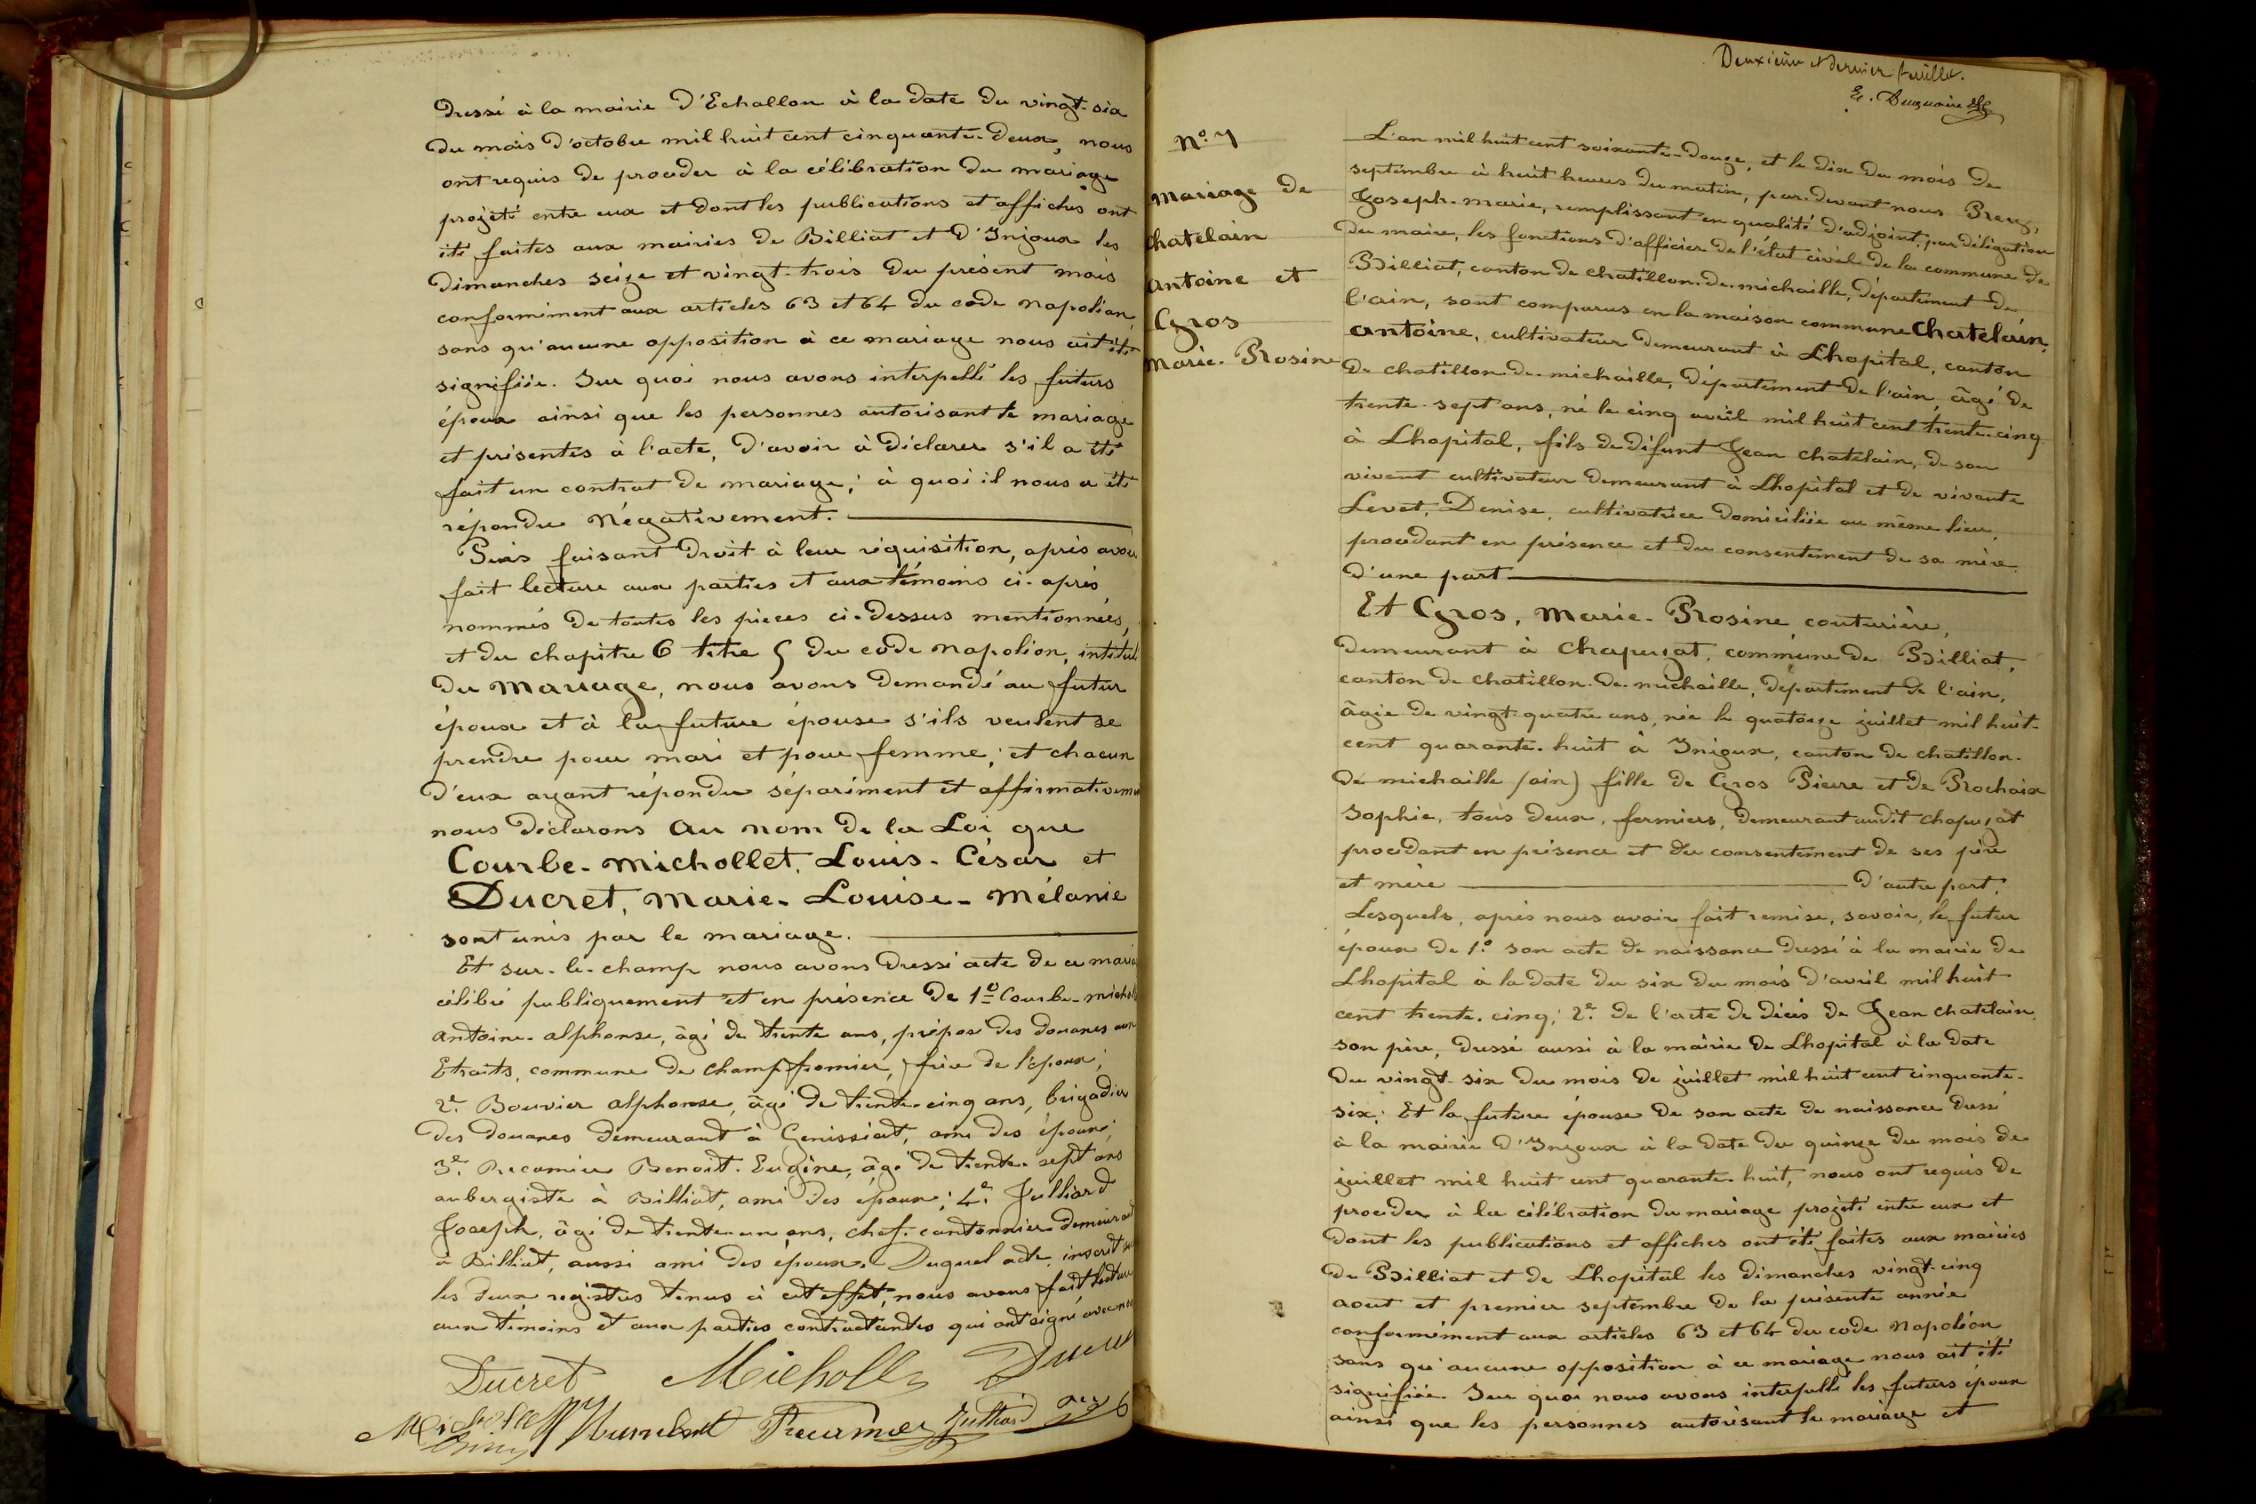 Dressé à la mairie d'Echallon à la date du vingt-six
du mois d'octobre mil huit cent cinquante-deux, nous
ont requis de procéder à la célébration du mariage
projeté entre eux et dont les publications et affiches ont
été faites aux mairies de Billiat et d'Injoux les
dimanches seize et vingt-trois du présent mois
conformément aux articles 63 et 64 du code Napoléon,
sans qu'aucune opposition à ce mariage nous ait été
signifiée. Sur quoi nous avons interpellé les futurs
époux ainsi que les personnes autorisant le mariage
et présentes à l'acte, d'avoir à déclarer s'il a été
fait un contrat de mariage; à quoi il nous a été
répondu Négativement.
Puis faisant droit à leur réquisition, après avoir
fait lecture aux parties et aux témoins ci-après
nommés de toutes les pièces ci-dessus mentionnées,
et du chapitre 6 titre 5 du code Napoléon, intitulé
du Mariage, nous avons demandé au futur
époux et à la future épouse s'ils veulent se
prendre pour mari et pour femme; et chacun
d'eux ayant répondu séparément et affirmativement
nous déclarons au nom de la Loi que
Courbe-Michollet, Louis-César et
Ducret, Marie-Louise-Mélanie
sont unis par le mariage.
Et sur-le-champ nous avons dressé acte de ce maria
célébré publiquement et en présence de 1º Courbe-Michol
Antoine-Alphonse, âgé de trente ans, préposé des douanes aux
Etraits, commune de Champfromier, frère de l'époux;
2e. Bouvier Alphonse, âgé de trente-cinq ans, brigadier
des douanes demeurant à Génissiat, ami des époux;
3e. Recamier Benoit-Eugène, âgé de trente-sept ans
aubergiste à Billiat, ami des époux; 4e. Julliard
Joseph, âgé de trente-un ans, chef-cantonnier demeurant
à Billiat, aussi ami des époux. Duquel acte, inscrit sur
les deux registres tenus à cet effet, nous avons fait lecture
aux témoins et aux parties contractantes qui ont signé avec nous
Ducret Michollet Ducret
Humbert Julliard
Deuxième et dernier feuillet.
Nº 7
Mariage de
Chatelain
Antoine et
Gros
Marie-Rosine
L'an mil huit cent soixante-douze, et le dix du mois de
septembre à huit heures du matin, par-devant nous
Joseph-Marie, remplissant en qualité d'adjoint, par délégation
du maire, les fonctions d'officier de l'état civil de la commune de
Billiat, canton de Chatillon-de-Michaille, département de
l'ain, sont comparus en la maison commune Chatelain,
Antoine, cultivateur demeurant à Lhopital, canton
de Chatillon-de-Michaille, département de l'ain, âgé de
trente-sept ans, né le cinq avril mil huit cent trente-cinq
à Lhopital, fils de défunt Jean Chatelain, de son
vivant cultivateur demeurant à Lhopital et de vivante
Levet, Denise, cultivatrice domiciliée au même lieu,
procédant en présence et du consentement de sa mère
d'une part
Et Gros, Marie-Rosine, couturière,
demeurant à Chapuzat, commune de Billiat,
canton de Chatillon-de-Michaille, département de l'ain,
âgée de vingt-quatre ans, née le quatorze juillet mil huit-
cent quarante-huit à Injoux, canton de Chatillon-
de Michaille (ain) fille de Gros Pierre et de Rochaix
Sophie, tous deux, fermiers, demeurant audit Chapuzat
procédant en présence et du consentement de ses père
et mère d'autre part.
Lesquels, après nous avoir fait remise, savoir, le futur
époux de 1º son acte de naissance dressé à la mairie de
Lhopital à la date du six du mois d'avril mil huit
cent trente-cinq; 2e. de l'acte de décès de Jean Chatelain
son père, dressé aussi à la mairie de Lhopital à la date
du vingt-six du mois de juillet mil huit cent cinquante-
six; Et la future épouse de son acte de naissance dressé
à la mairie d'Injoux à la date du quinze du mois de
juillet mil huit cent quarante-huit, nous ont requis de
procéder à la célébration du mariage projeté entre eux et
dont les publications et affiches ont été faites aux mairies
de Billiat et de Lhopital les dimanches vingt-cinq
aout et premier septembre de la présente année
conformément aux articles 63 et 64 du code Napoléon
sans qu'aucune opposition à ce mariage nous ait été
signifiée. Sur quoi nous avons interpellé les futurs époux
ainsi que les personnes autorisant le mariage et